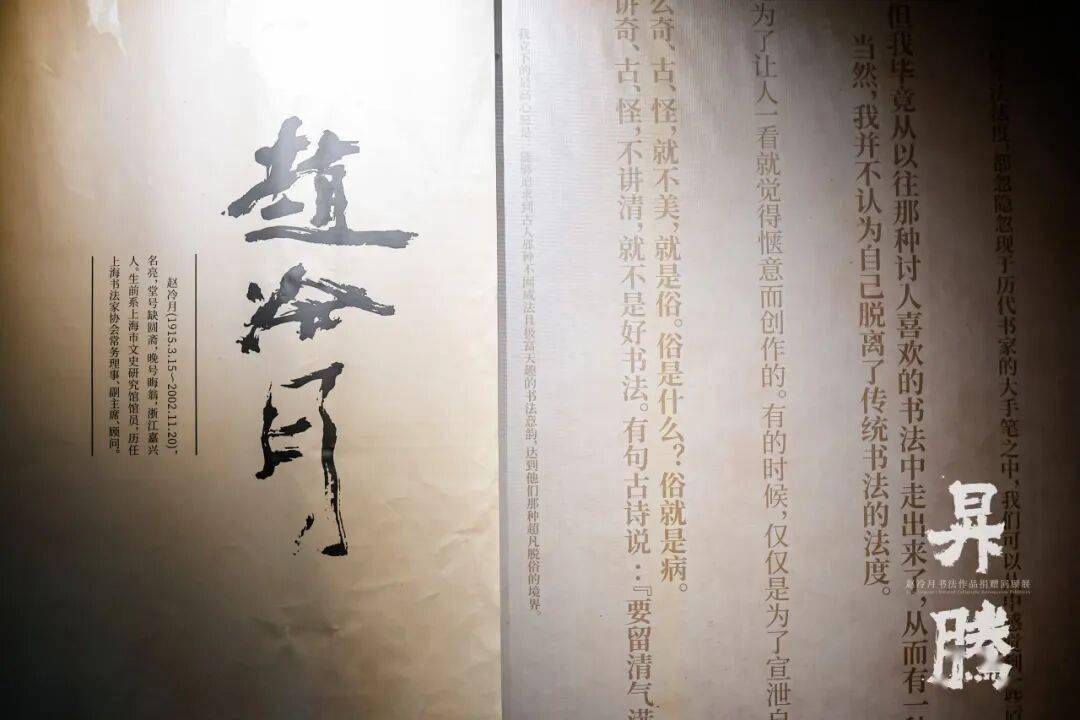 趙冷月
赵冷月(1915.3.15～2002.11.20)，
名亮，堂号缺圆斋，晚号晦翁，浙江嘉兴
人。生前系上海市文史研究馆馆员，历任
上海书法家协会常务理事、副主席、顾问。
法度，都忽隐忽现于历代书家的大手笔之中，我们可以从中
但我毕竟从以往那种讨人喜欢的书法中走出来了，从而有一
当然，我并不认为自己脱离了传统书法的法度。
为了让人一看就觉得惬意而创作的。有的时候，仅仅是为了宣泄自
么奇、古、怪，就不美，就是俗。俗是什么？俗就是病。
讲奇、古、怪，不讲清，就不是好书法。有句古诗说：『要留清气满
我立下的最高心愿是，能够追求到古人那种不囿成法且极富天趣的书法意韵，达到他们那种超凡脱俗的境界。
昇騰
赵冷月书法作品捐赠回顾展